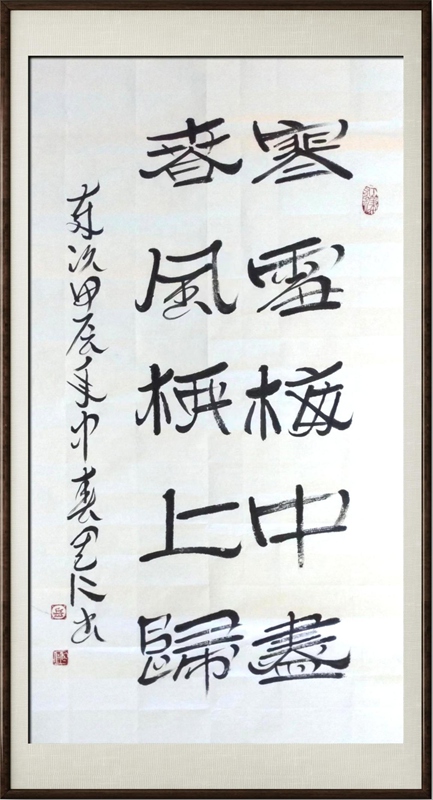 寒雪梅中盡
春風柳上歸
歲次甲辰年中春仁书